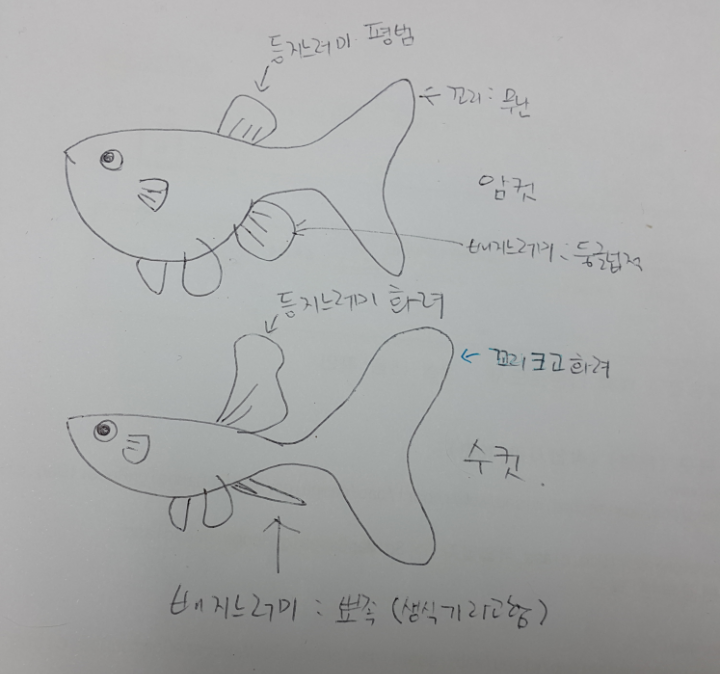 등지느러미 평범
꼬리: 무난
암컷
배지느러미: 둥글넙적
등지느러미 화려
꼬리 크고 화려
수컷.
배지느러미: 뾰족 (생식기라고함)